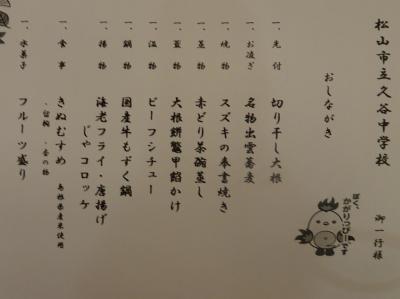 松山市立久谷中学校
御一行様
おしながき
ぼく、
かがりっぴーです
一、先付 切り干し大根
一、お凌ぎ 名物出雲蕎麦
一、焼物 スズキの奉書焼き
一、蒸物 赤どり茶碗蒸し
一、蓋物 大根餅鼈甲餡かけ
一、温物 ビーフシチュー
一、鍋物 国産牛もずく鍋
一、揚物 海老フライ・唐揚げ
じゃコロッケ
一、食事 きぬむすめ 島根県産米使用
、留椀 、香の物
一、水菓子 フルーツ盛り